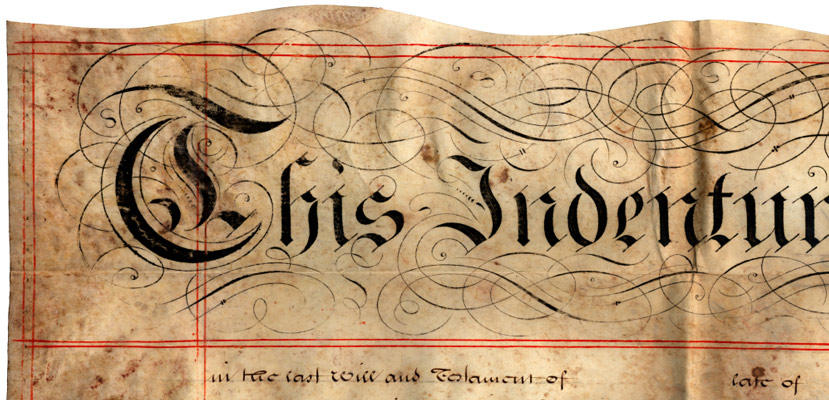 This Indentur
in the last Will and Testament of late of